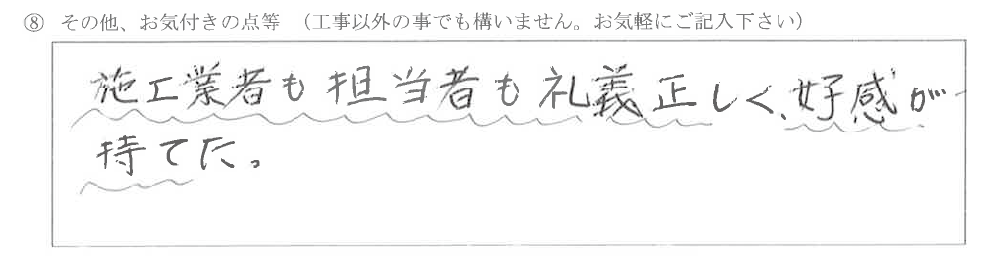 ⑧ その他、お気付きの点等 （工事以外の事でも構いません。お気軽にご記入下さい）
施工業者も担当者も礼義正しく、好感が
持てた。